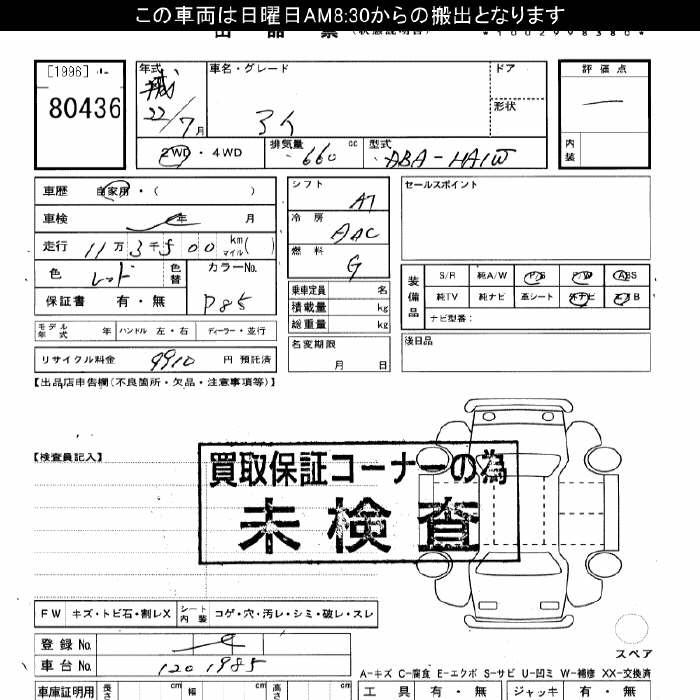 この車両は日曜日AM8:30からの搬出となります
[1996]
80436
年式 車名・グレード ドア 評価点
22/7月 アイ 形状 内装
2WD・4WD 排気量 660 cc 型式 ABA-HA1W
車歴 自家用・( ) シフト AT セールスポイント
車検 年 月 冷房 AAC
走行 11万3千500 km マイル( ) 燃料 G
色 レッド 色替 カラーNo. P85
保証書 有・無
乗車定員 名
積載量 kg
総重量 kg
装備品 S/R 純A/W P/S P/W ABS
純TV 純ナビ 革シート 外ナビ エアB
ナビ型番:
モデル年式 年 ハンドル 左・右 ディーラー・並行 名変期限 月 日 後日品
リサイクル料金 9910 円 預託済
【出品店申告欄(不良箇所・欠品・注意事項等)】
【検査員記入】
買取保証コーナーの為
未検査
FW キズ・トビ石・割レX シート内装 コゲ・穴・汚レ・シミ・破レ・スレ
登録No.
車台No. 1201985
スペア
A-キズ C-腐食 E-エクボ S-サビ U-凹ミ W-補修 XX-交換済
車庫証明用 長さ cm 幅 cm 高さ cm 工具 有・無 ジャッキ 有・無